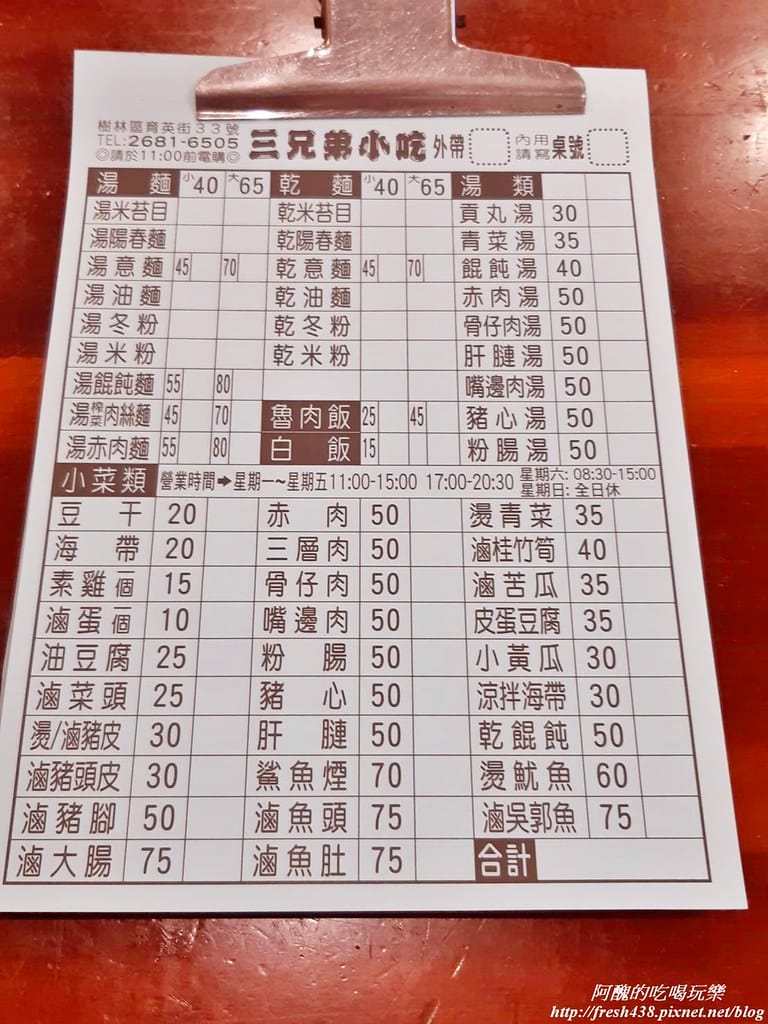 樹林區育英街33號
TEL:2681-6505
◎請於11:00前電購◎
三兄弟小吃 外帶 內用請寫桌號
湯麵 小40 大65 乾麵 小40 大65 湯類
湯米苔目 乾米苔目 貢丸湯 30
湯陽春麵 乾陽春麵 青菜湯 35
湯意麵 45 70 乾意麵 45 70 餛飩湯 40
湯油麵 乾油麵 赤肉湯 50
湯冬粉 乾冬粉 骨仔肉湯 50
湯米粉 乾米粉 肝膭湯 50
湯餛飩麵 55 80 嘴邊肉湯 50
湯榨菜肉絲麵 45 70 魯肉飯 25 45 豬心湯 50
湯赤肉麵 55 80 白飯 15 粉腸湯 50
小菜類 營業時間➡星期一~星期五11:00-15:00 17:00-20:30 星期六: 08:30-15:00
星期日: 全日休
豆干 20 赤肉 50 燙青菜 35
海帶 20 三層肉 50 滷桂竹筍 40
素雞一個 15 骨仔肉 50 滷苦瓜 35
滷蛋一個 10 嘴邊肉 50 皮蛋豆腐 35
油豆腐 25 粉腸 50 小黃瓜 30
滷菜頭 25 豬心 50 涼拌海帶 30
燙/滷豬皮 30 肝膭 50 乾餛飩 50
滷豬頭皮 30 鯊魚煙 70 燙魷魚 60
滷豬腳 50 滷魚頭 75 滷吳郭魚 75
滷大腸 75 滷魚肚 75 合計
阿醜的吃喝玩樂
http://fresh438.pixnet.net/blog